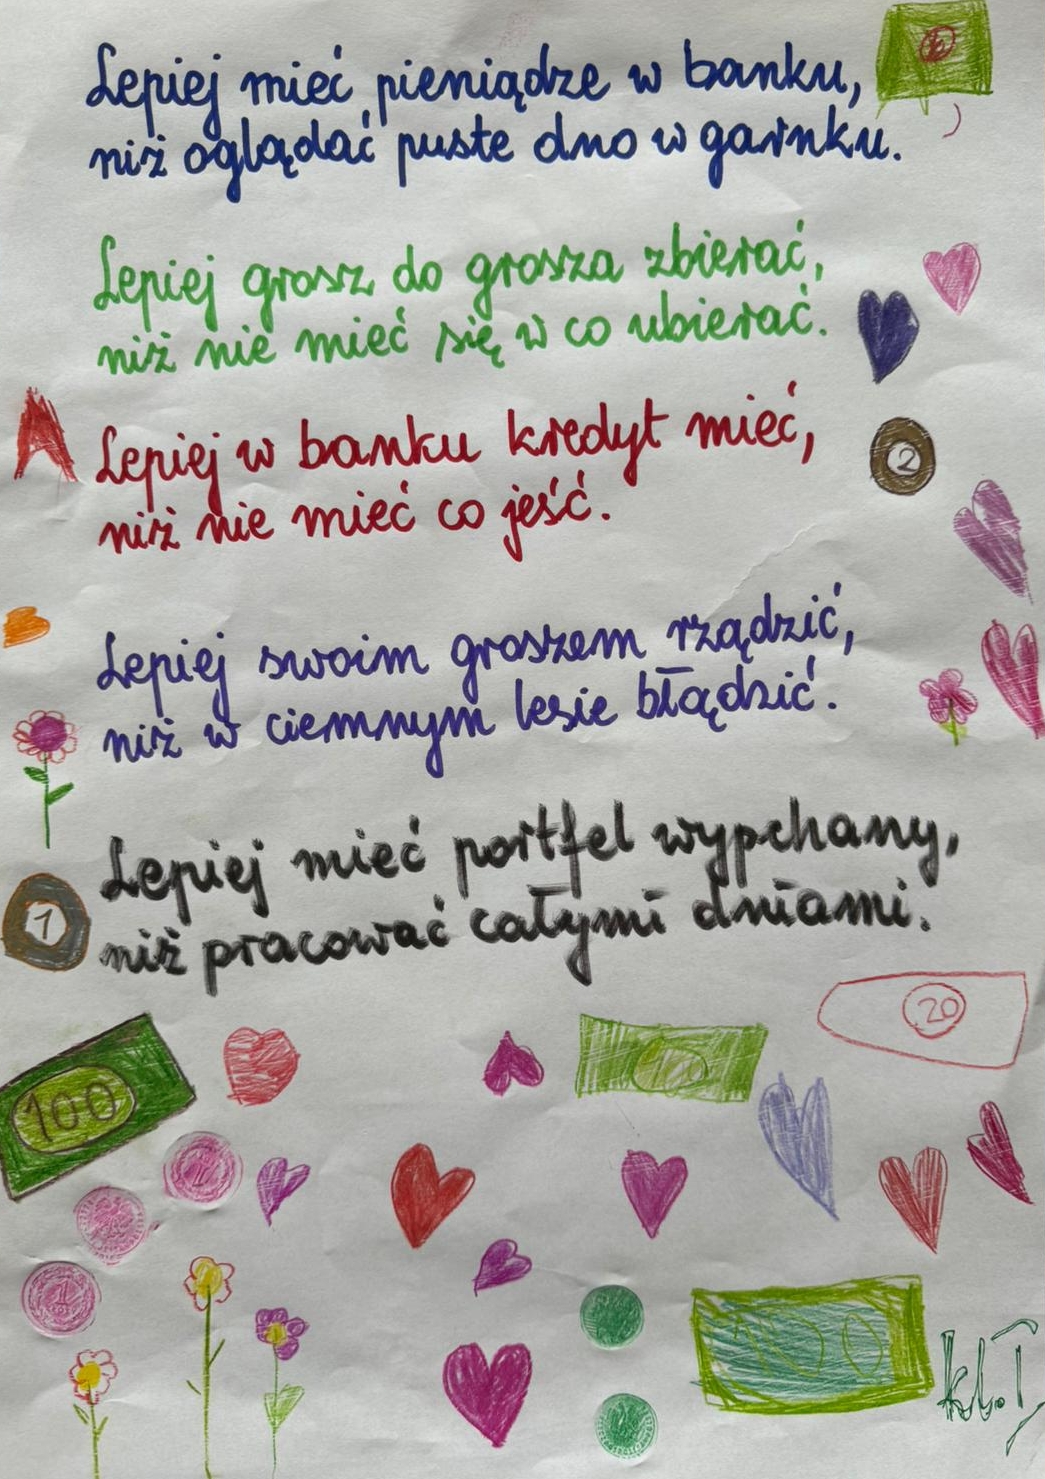 Lepiej mieć pieniądze w banku,
niż oglądać puste dno w garnku.
Lepiej grosz do grosza zbierać,
niż nie mieć się w co ubierać.
Lepiej w banku kredyt mieć,
niż nie mieć co jeść.
2
Lepiej swoim groszem rządzić,
niż w ciemnym lesie błądzić.
Lepiej mieć portfel wypchany,
niż pracować całymi dniami.
1
20
100
10
1
1
100
kl. I